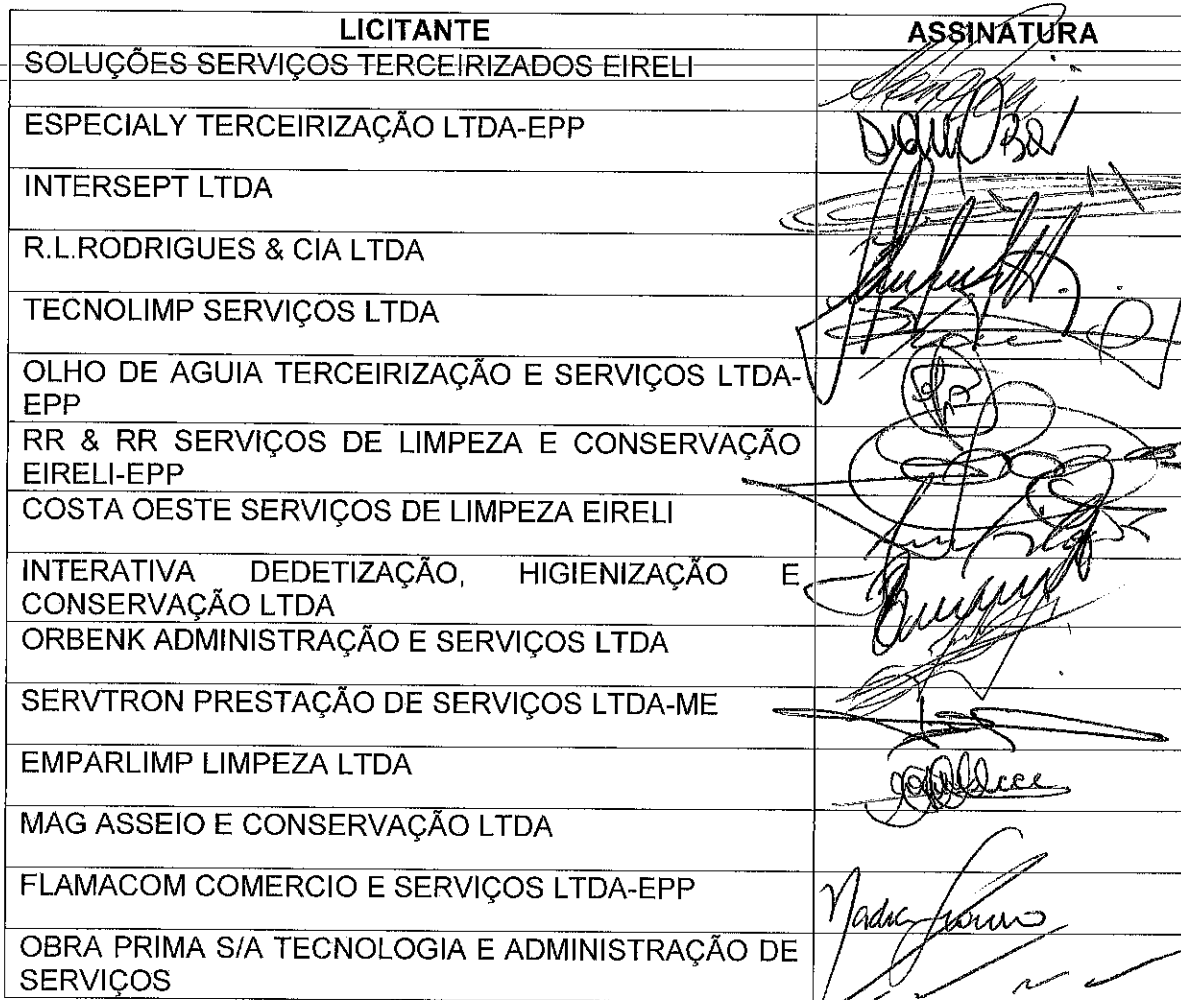 LICITANTE ASSINATURA
SOLUÇÕES SERVIÇOS TERCEIRIZADOS EIRELI
ESPECIALY TERCEIRIZAÇÃO LTDA-EPP
INTERSEPT LTDA
R.L.RODRIGUES & CIA LTDA
TECNOLIMP SERVIÇOS LTDA
OLHO DE AGUIA TERCEIRIZAÇÃO E SERVIÇOS LTDA-
EPP
RR & RR SERVIÇOS DE LIMPEZA E CONSERVAÇÃO
EIRELI-EPP
COSTA OESTE SERVIÇOS DE LIMPEZA EIRELI
INTERATIVA DEDETIZAÇÃO, HIGIENIZAÇÃO E
CONSERVAÇÃO LTDA
ORBENK ADMINISTRAÇÃO E SERVIÇOS LTDA
SERVTRON PRESTAÇÃO DE SERVIÇOS LTDA-ME
EMPARLIMP LIMPEZA LTDA
MAG ASSEIO E CONSERVAÇÃO LTDA
FLAMACOM COMERCIO E SERVIÇOS LTDA-EPP
OBRA PRIMA S/A TECNOLOGIA E ADMINISTRAÇÃO DE
SERVIÇOS